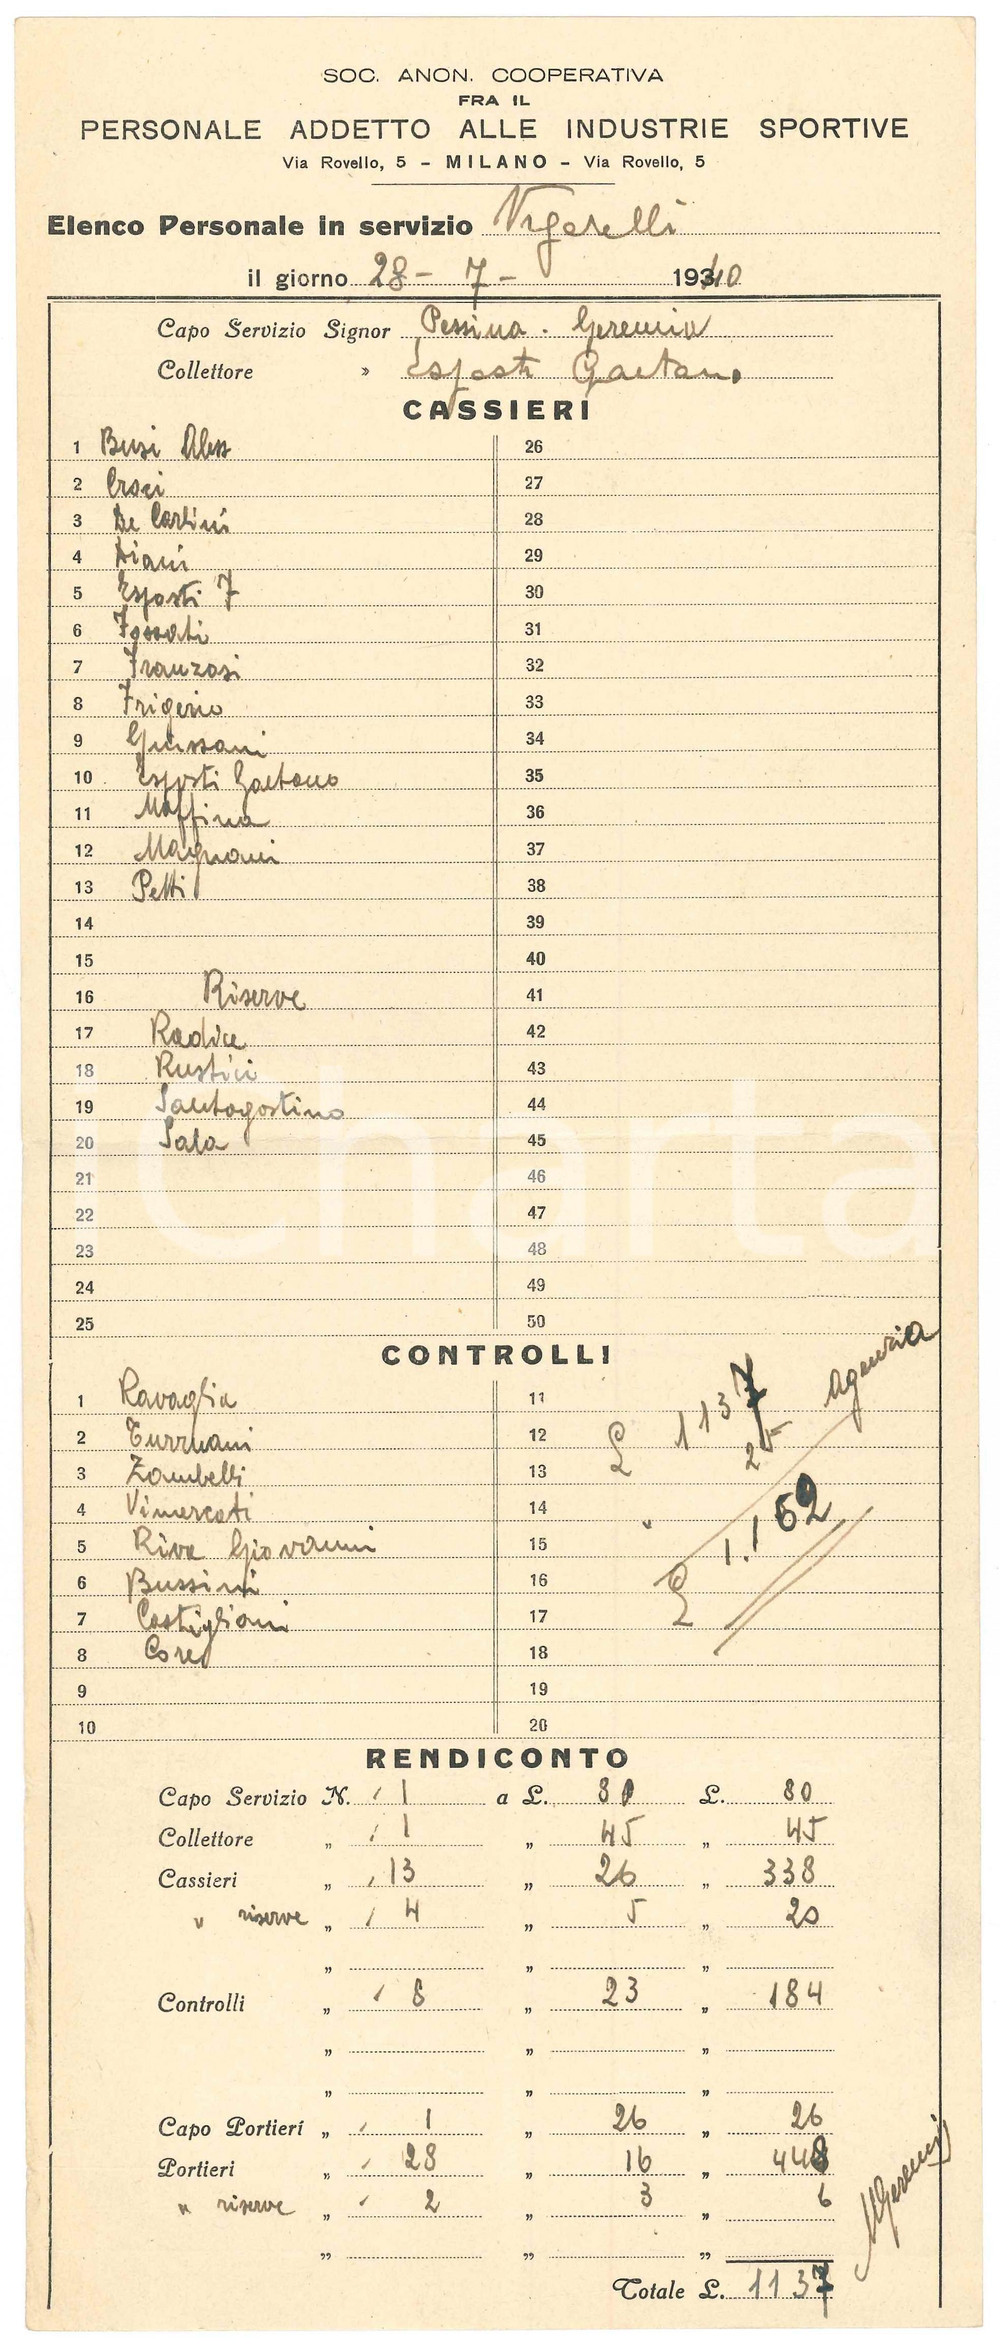 SOC. ANON. COOPERATIVA
FRA IL
PERSONALE ADDETTO ALLE INDUSTRIE SPORTIVE
Via Rovello, 5 - MILANO - Via Rovello, 5
Elenco Personale in servizio Vigorelli
il giorno 28 - 7 - 1940
Capo Servizio Signor Pessina . Geremia
Collettore » Esposti Gaetano
CASSIERI
1 Busi Aless 26
2 Croci 27
3 De Carlini 28
4 Diani 29
5 Esposti F 30
6 Fossati 31
7 Franzosi 32
8 Frigerio 33
9 Giussani 34
10 Esposti Gaetano 35
11 Maffina 36
12 Magnani 37
13 Petti 38
14 39
15 40
16 Riserve 41
17 Radice 42
18 Rustici 43
19 Santagostino 44
20 Sala 45
21 46
22 47
23 48
24 49
25 50
CONTROLLI
1 Ravaglia 11
2 Turrnani 12
3 Zambelli 13
4 Vimercati 14
5 Riva Giovanni 15
6 Bussini 16
7 Castiglioni 17
8 Core 18
9 19
10 20
£ 1137
25 Agenzia
£ 1.162
RENDICONTO
Capo Servizio N. 1 a L. 80 L. 80
Collettore „ 1 „ 45 „ 45
Cassieri „ 13 „ 26 „ 338
" riserve „ 4 „ 5 „ 20
„ „ „
Controlli „ 8 „ 23 „ 184
„ „ „
„ „ „
Capo Portieri „ 1 „ 26 „ 26
Portieri „ 28 „ 16 „ 448
" riserve „ 2 „ 3 „ 6
„ „ „
Totale L. 1137
Charta